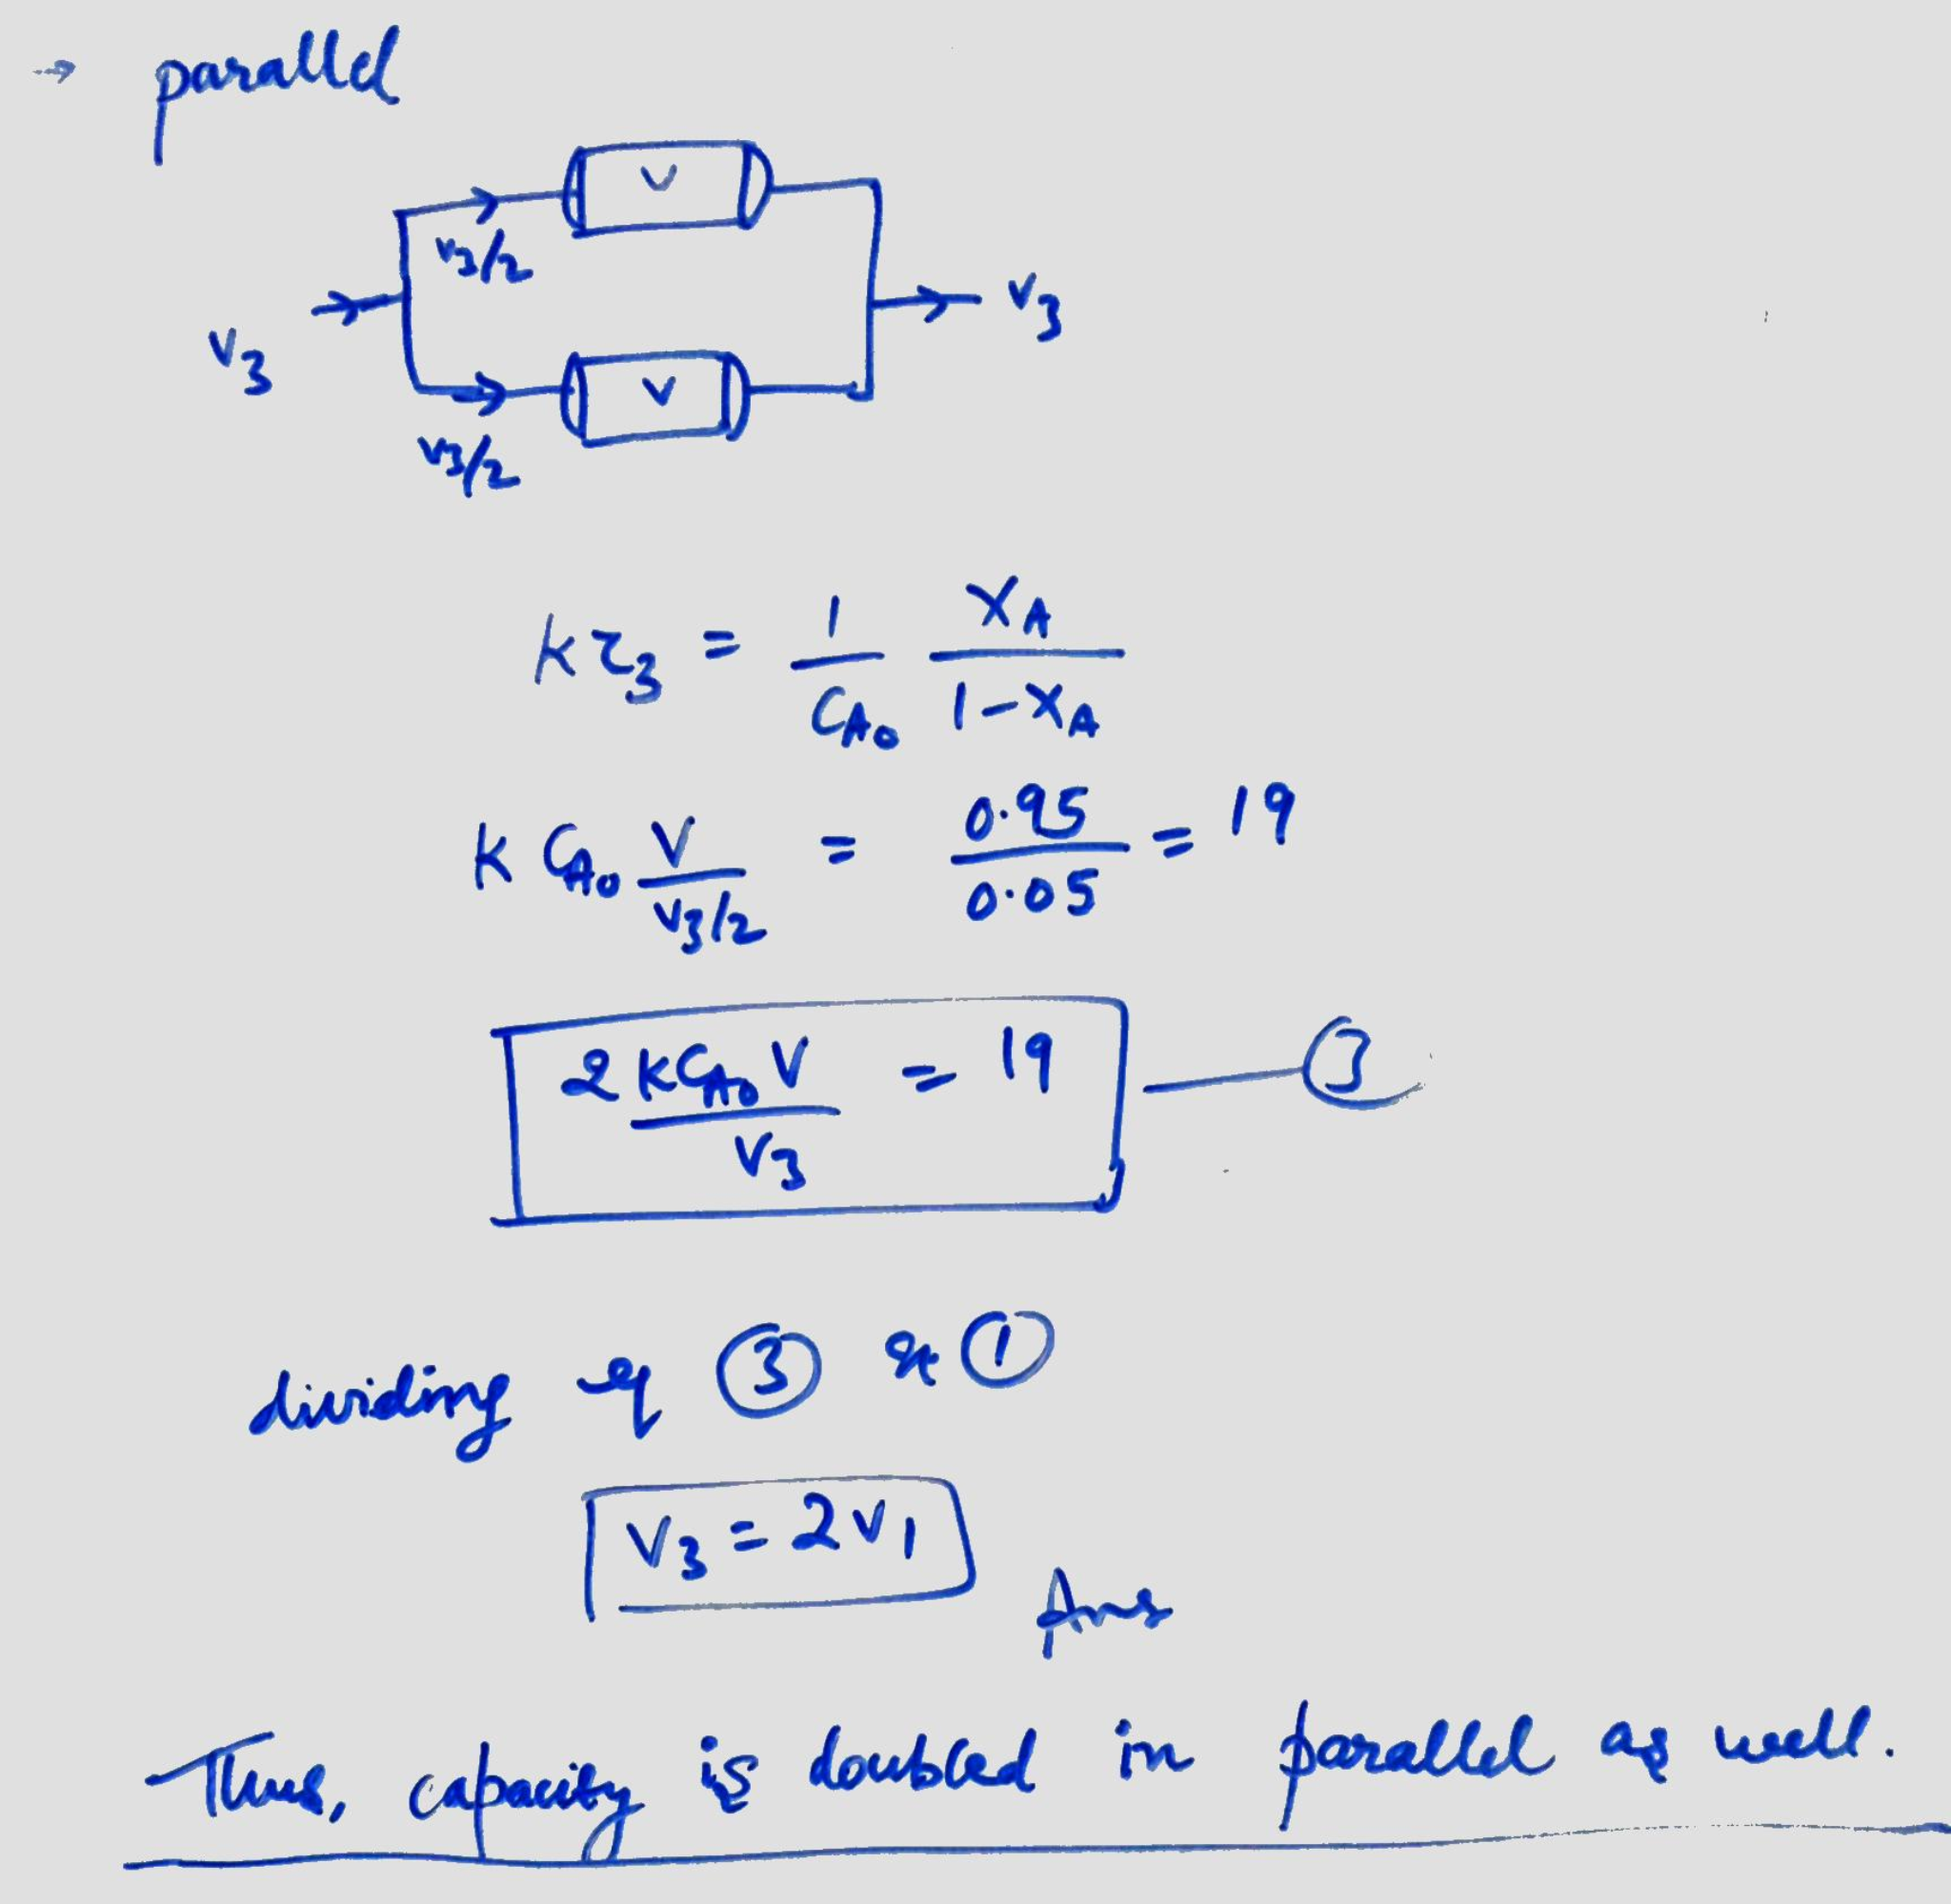 → parallel
V
v3/2
v3
v3
V
v3/2
kτ3 = 1/CA0 XA/1-XA
K CA0 V/v3/2 = 0.95/0.05 = 19
2KCA0V/v3 = 19 — ③
dividing eq ③ & ①
v3 = 2v1
Ans
Thus, capacity is doubled in parallel as well.